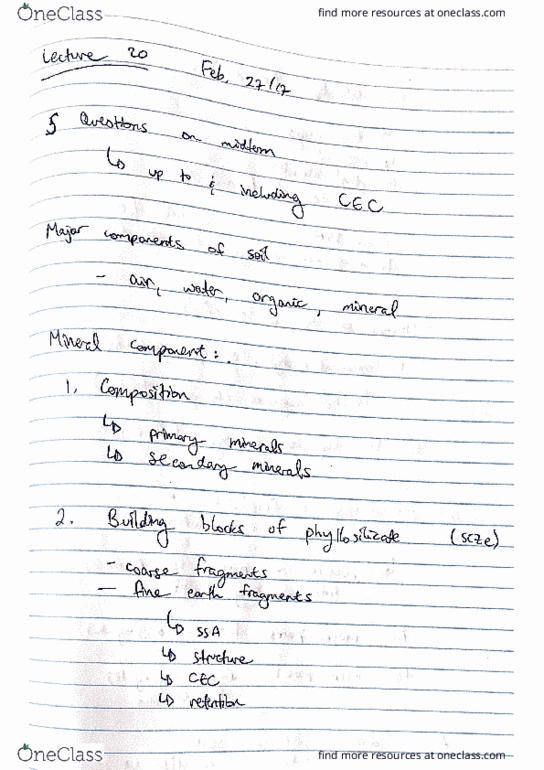 OneClass find more resources at oneclass.com
Lecture 20 Feb, 27/17
5 Questions on midterm
↳ up to & including CEC
Major components of soil
- air, water, organic, mineral
Mineral component:.
1. Composition
↳ primary minerals
↳ secondary minerals
2. Building blocks of phyllosilicate (size)
- coarse fragments
- fine earth fragments
↳ SSA
↳ structure
↳ CEC
↳ retention
OneClass find more resources at oneclass.com